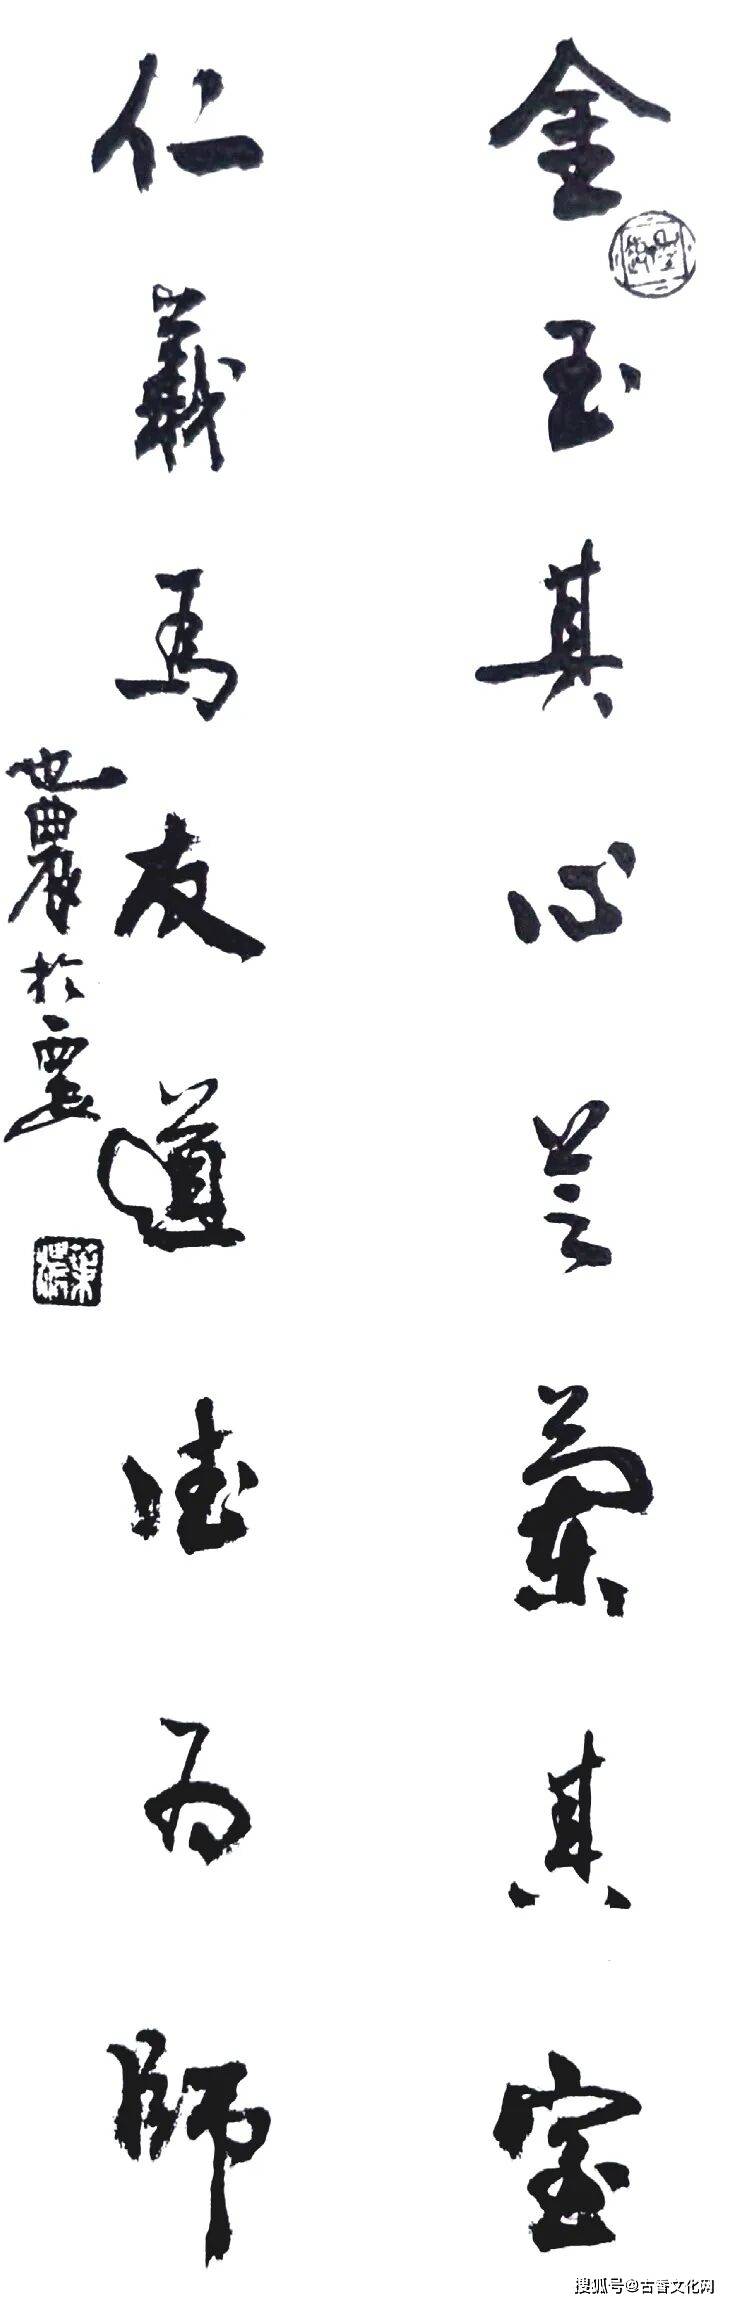 金玉其心芝蘭其室
仁義為友道德為師
也農於
搜狐号@古香文化网